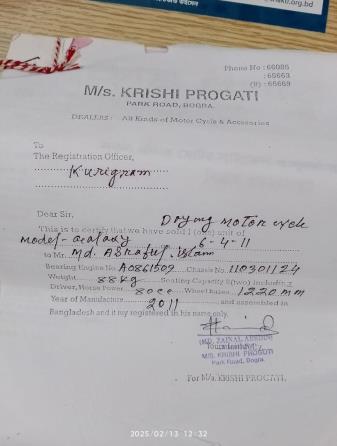 Phone No : 66085
: 65663
(R) : 65669
M/s. KRISHI PROGATI
PARK ROAD, BOGRA.
DEALERS: All Kinds of Motor Cycle & Accessories
To
The Registration Officer,
Kurigram
Dear Sir,
Dayang Motor cycle
This is to certify that we have sold 1 (one) unit of
6-4-11
to Mr. Md. Ashraful Islam
Bearing Engine No. A0861509 Chassis No. 110301124
Weight 88kg Seating Capacity 2(two) including
Driver, Horse Power 80cc Wheel Bases 1220 mm
Year of Manufacture 2011 and assembled in
Bangladesh and it my registered in his name only.
M/S. KRISHI PROGATI
Park Road, Bogra.
For M/s. KRISHI PROGATI.
2025/02/13 12:32